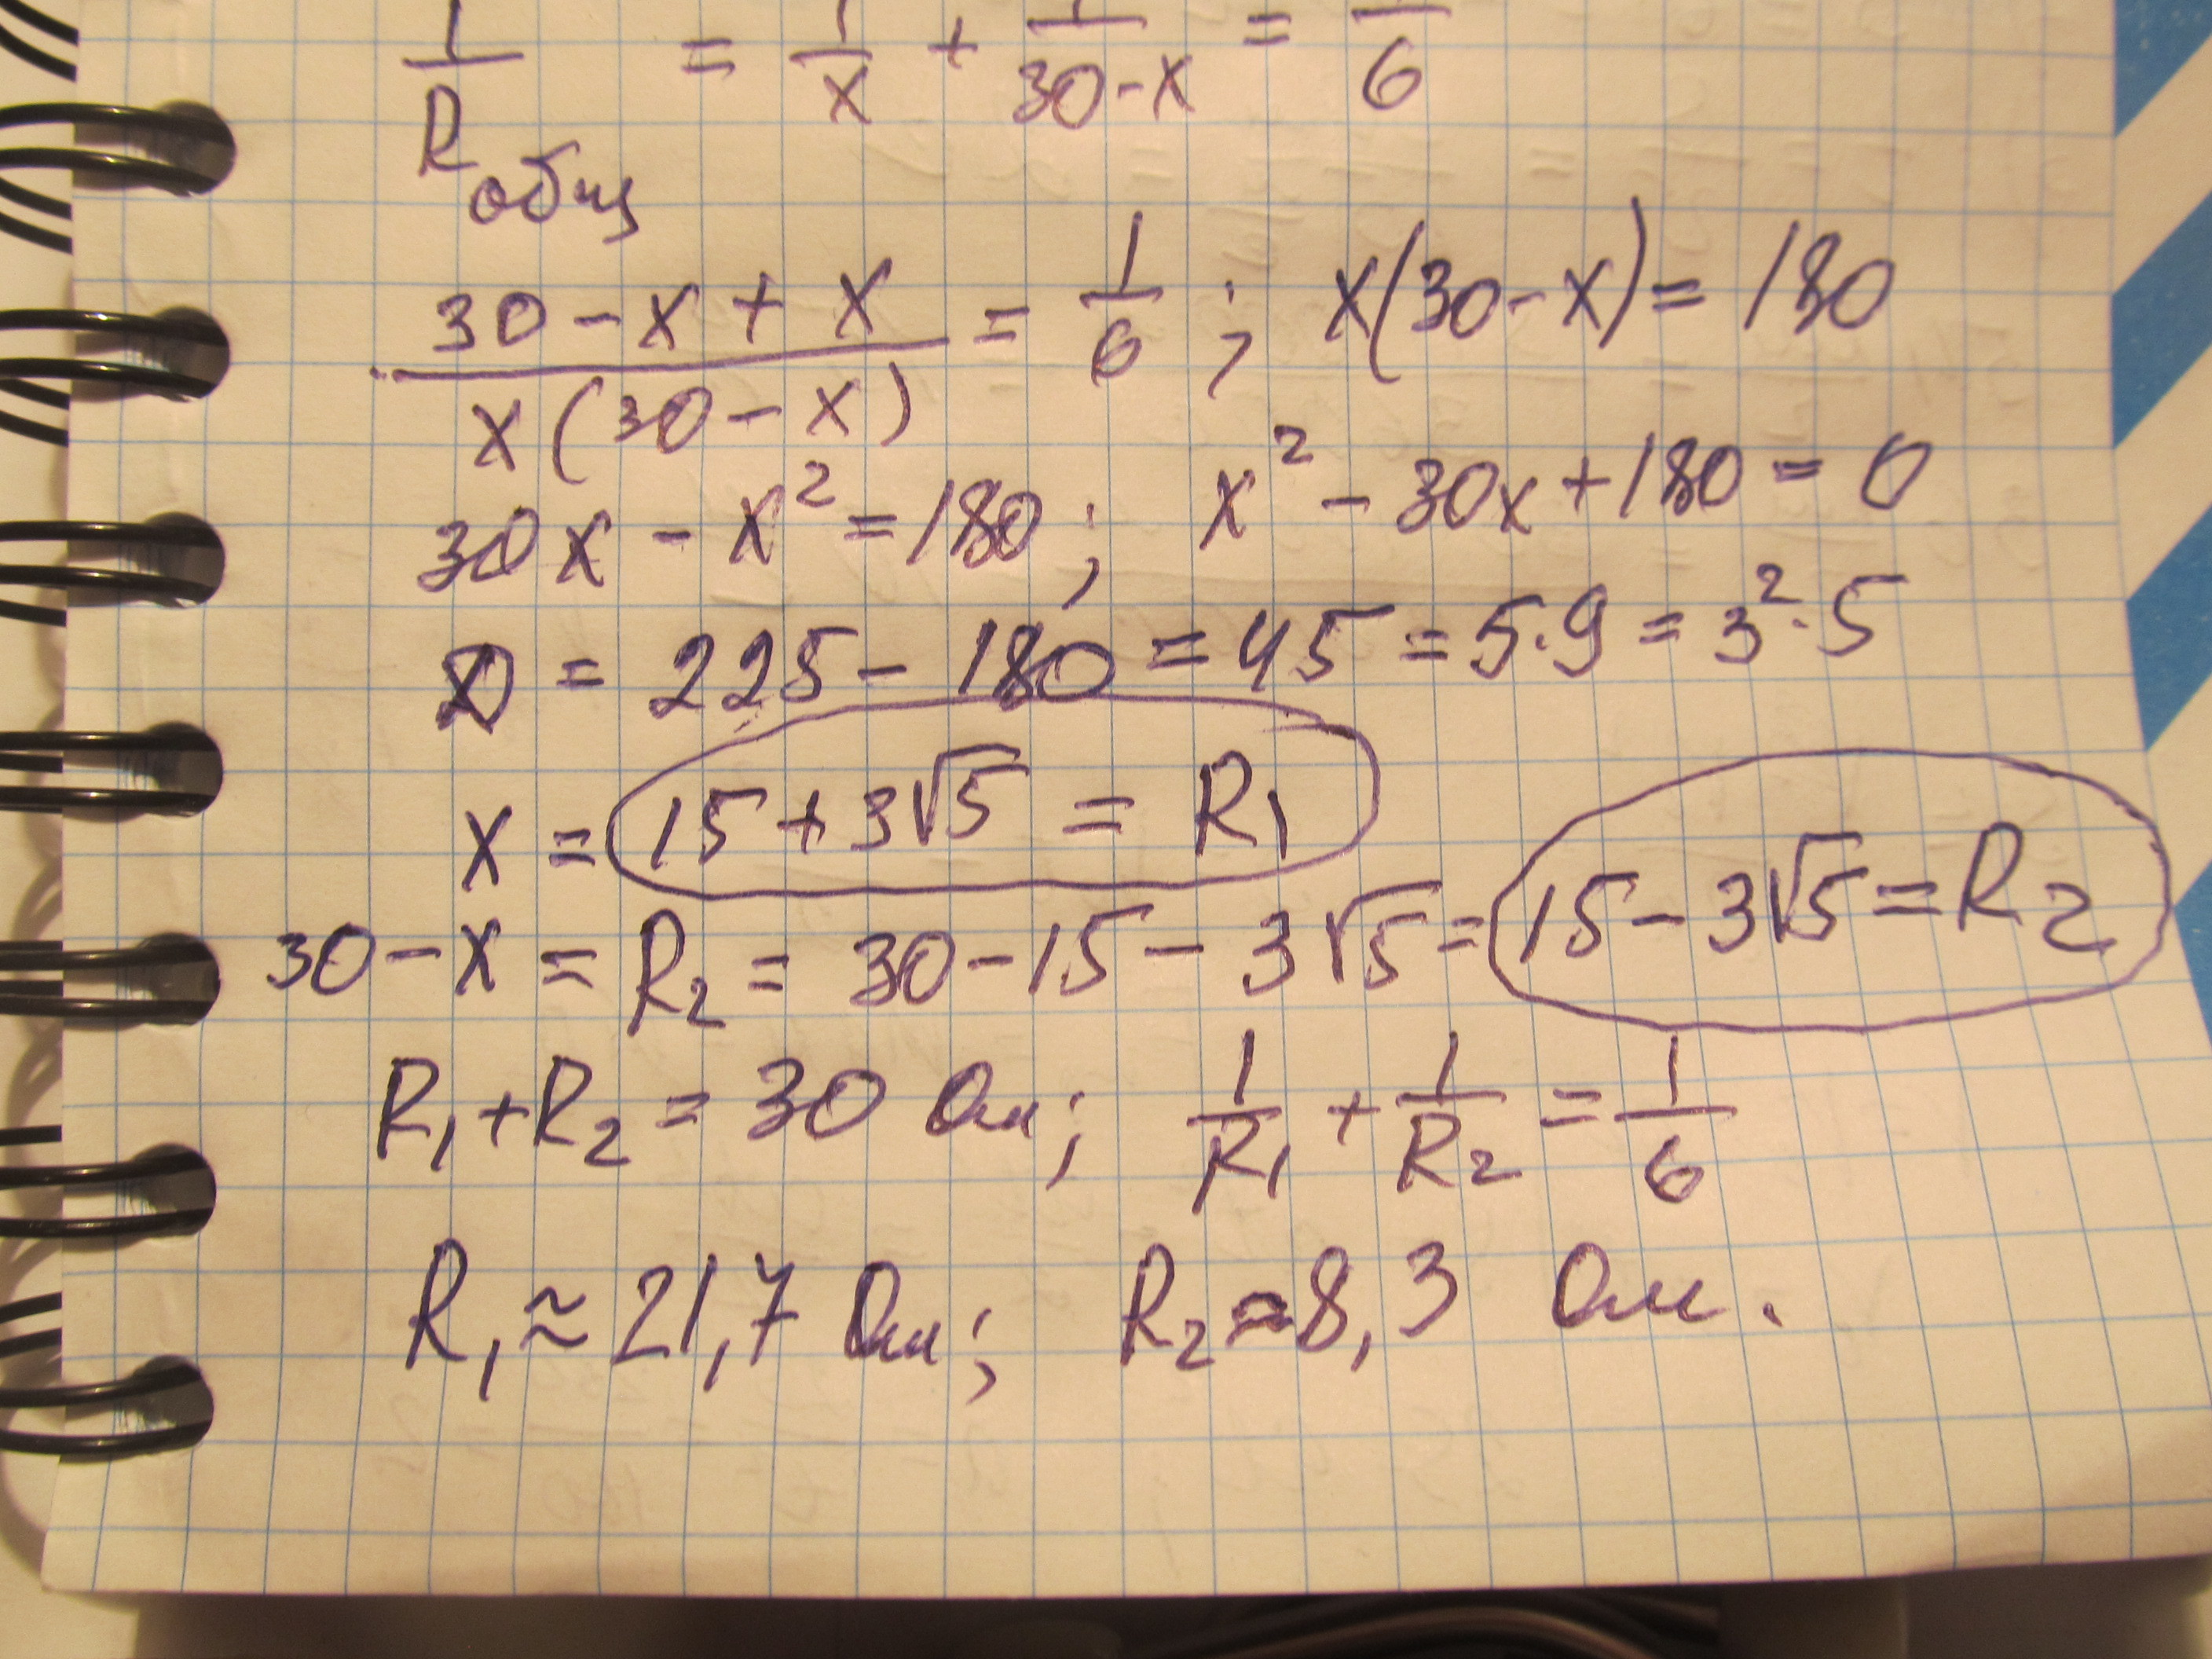 1/Rобщ = 1/x + 1/(30-x) = 1/6
(30-x+x)/(x(30-x)) = 1/6 ; x(30-x) = 180
30x - x² = 180 ; x² - 30x + 180 = 0
D = 225 - 180 = 45 = 5·9 = 3²·5
x = 15 + 3√5 = R₁
30 - x = R₂ = 30 - 15 - 3√5 = 15 - 3√5 = R₂
R₁ + R₂ = 30 Ом ; 1/R₁ + 1/R₂ = 1/6
R₁ ≈ 21,7 Ом ; R₂ = 8,3 Ом .